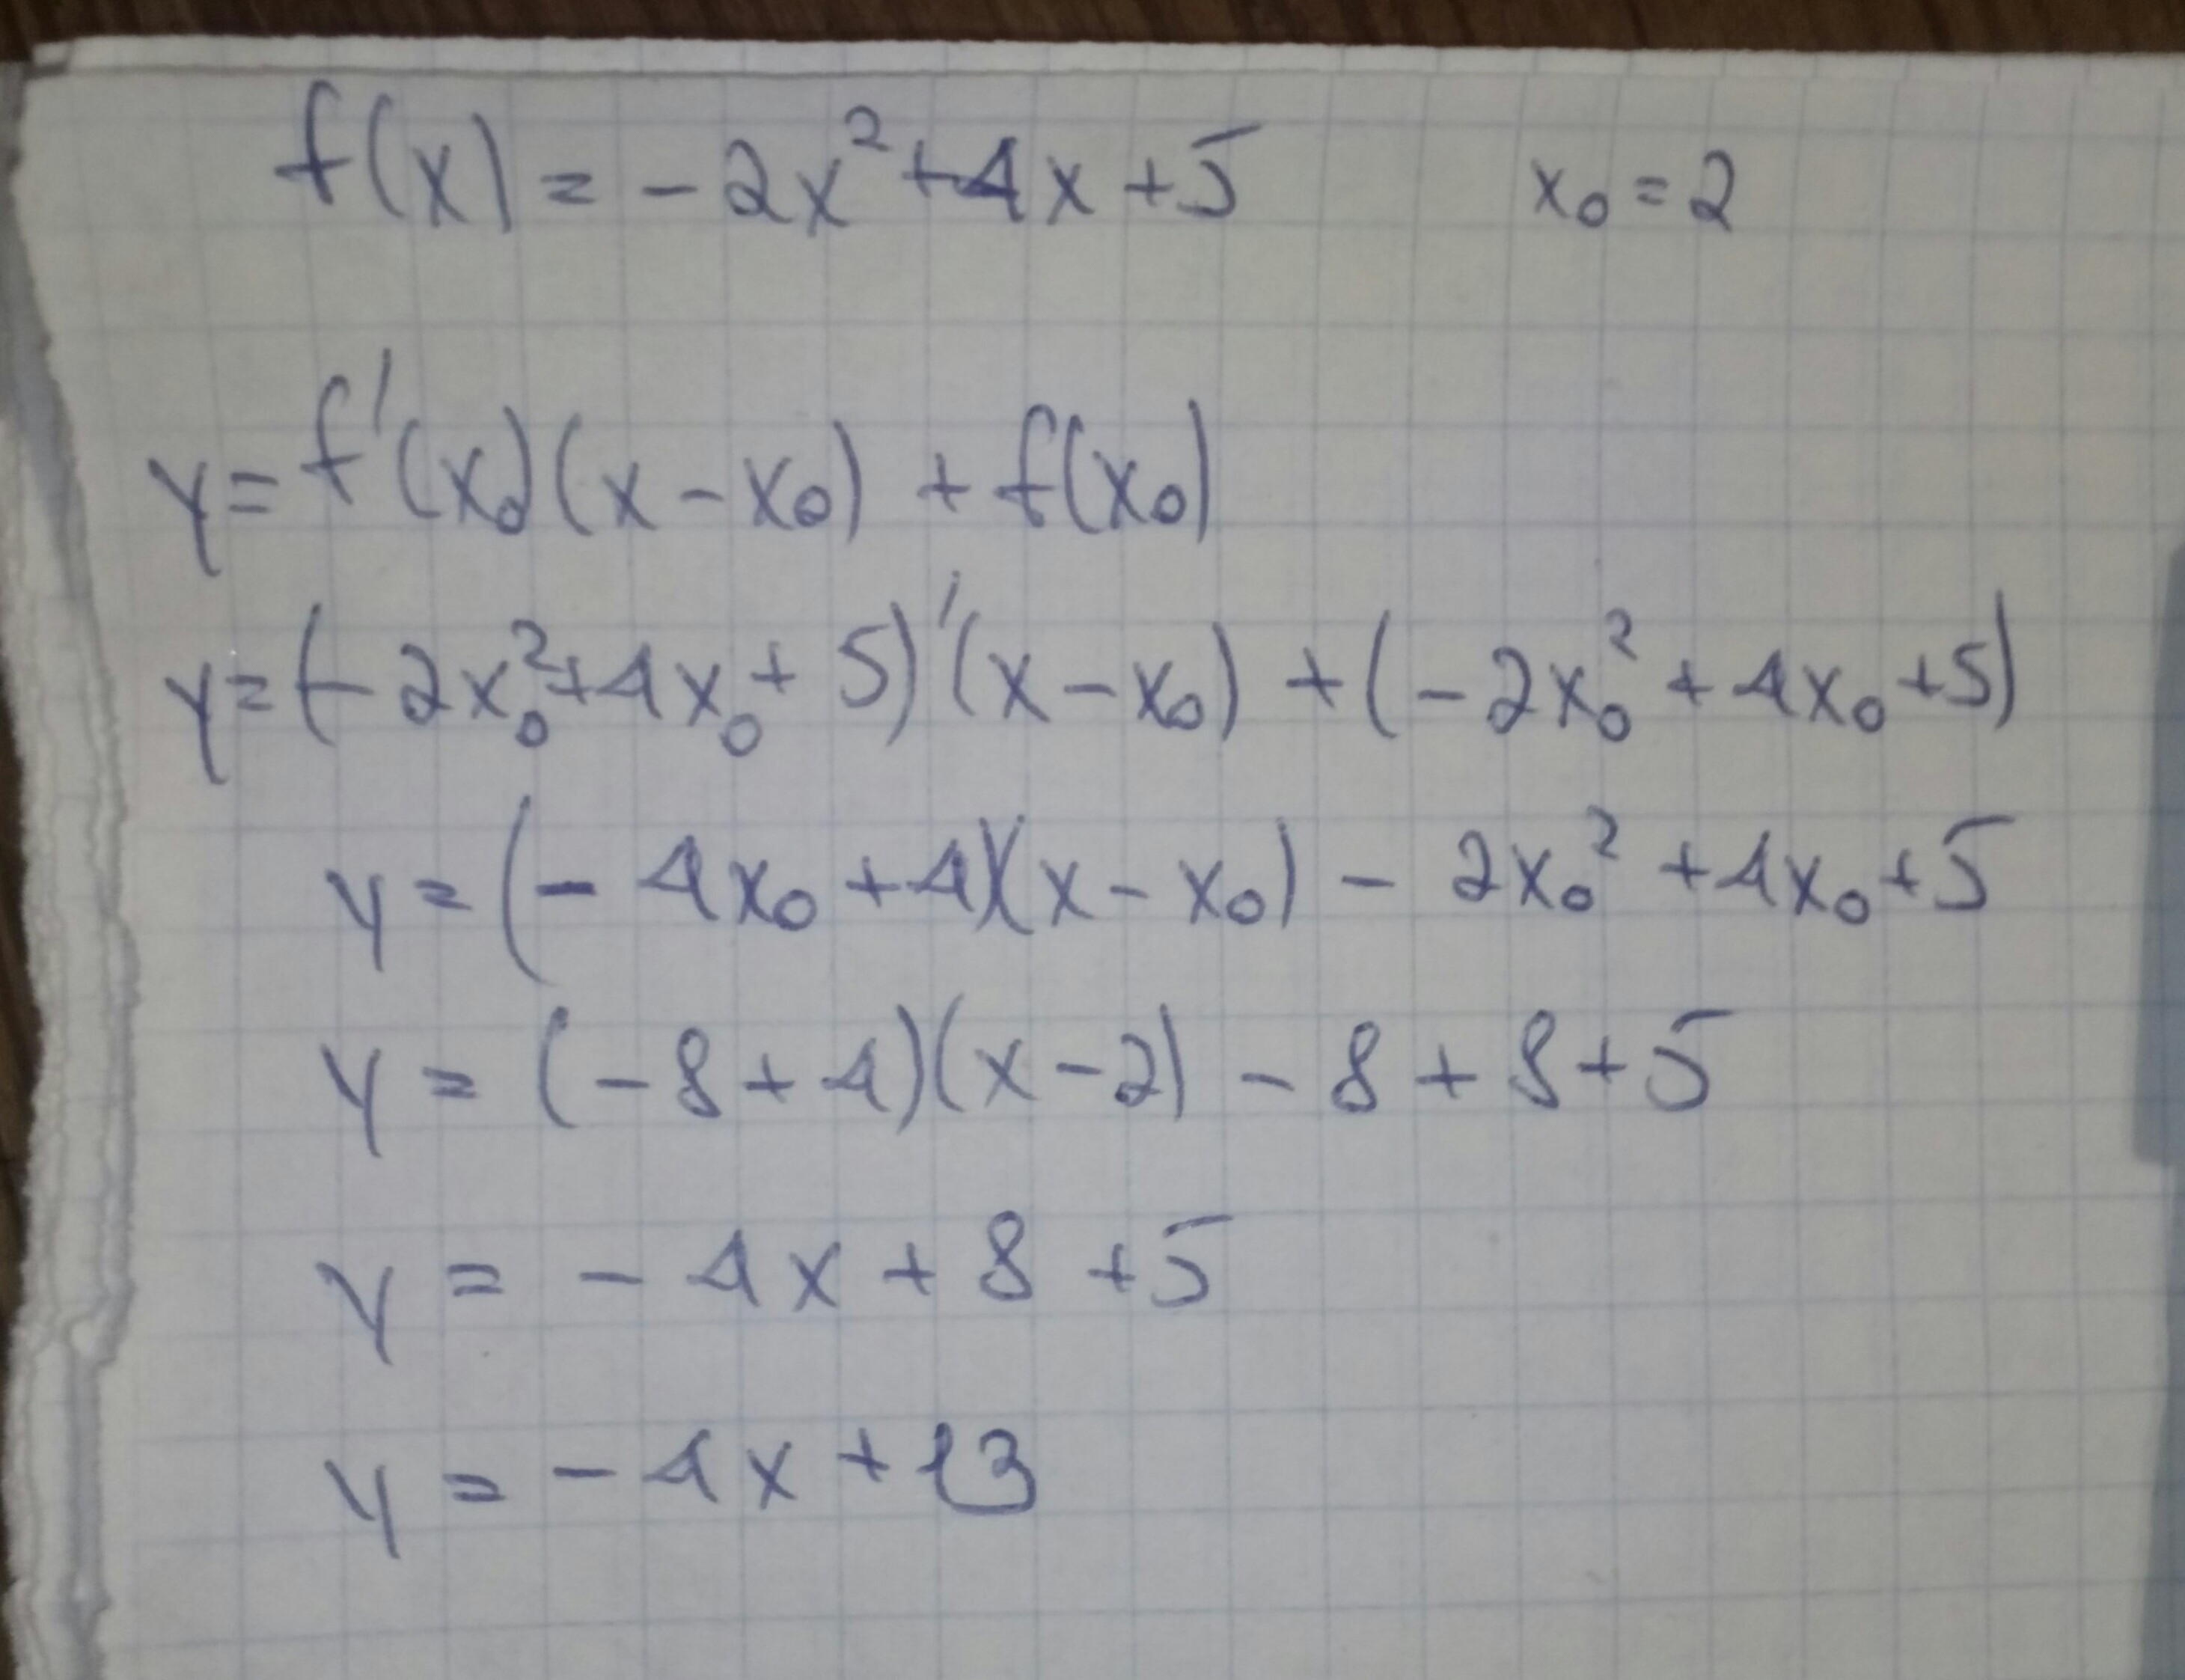 f(x) = -2x² + 4x + 5 x₀ = 2
y = f'(x₀)(x - x₀) + f(x₀)
y = (-2x₀² + 4x₀ + 5)'(x - x₀) + (-2x₀² + 4x₀ + 5)
y = (-4x₀ + 4)(x - x₀) - 2x₀² + 4x₀ + 5
y = (-8 + 4)(x - 2) - 8 + 8 + 5
y = -4x + 8 + 5
y = -4x + 13